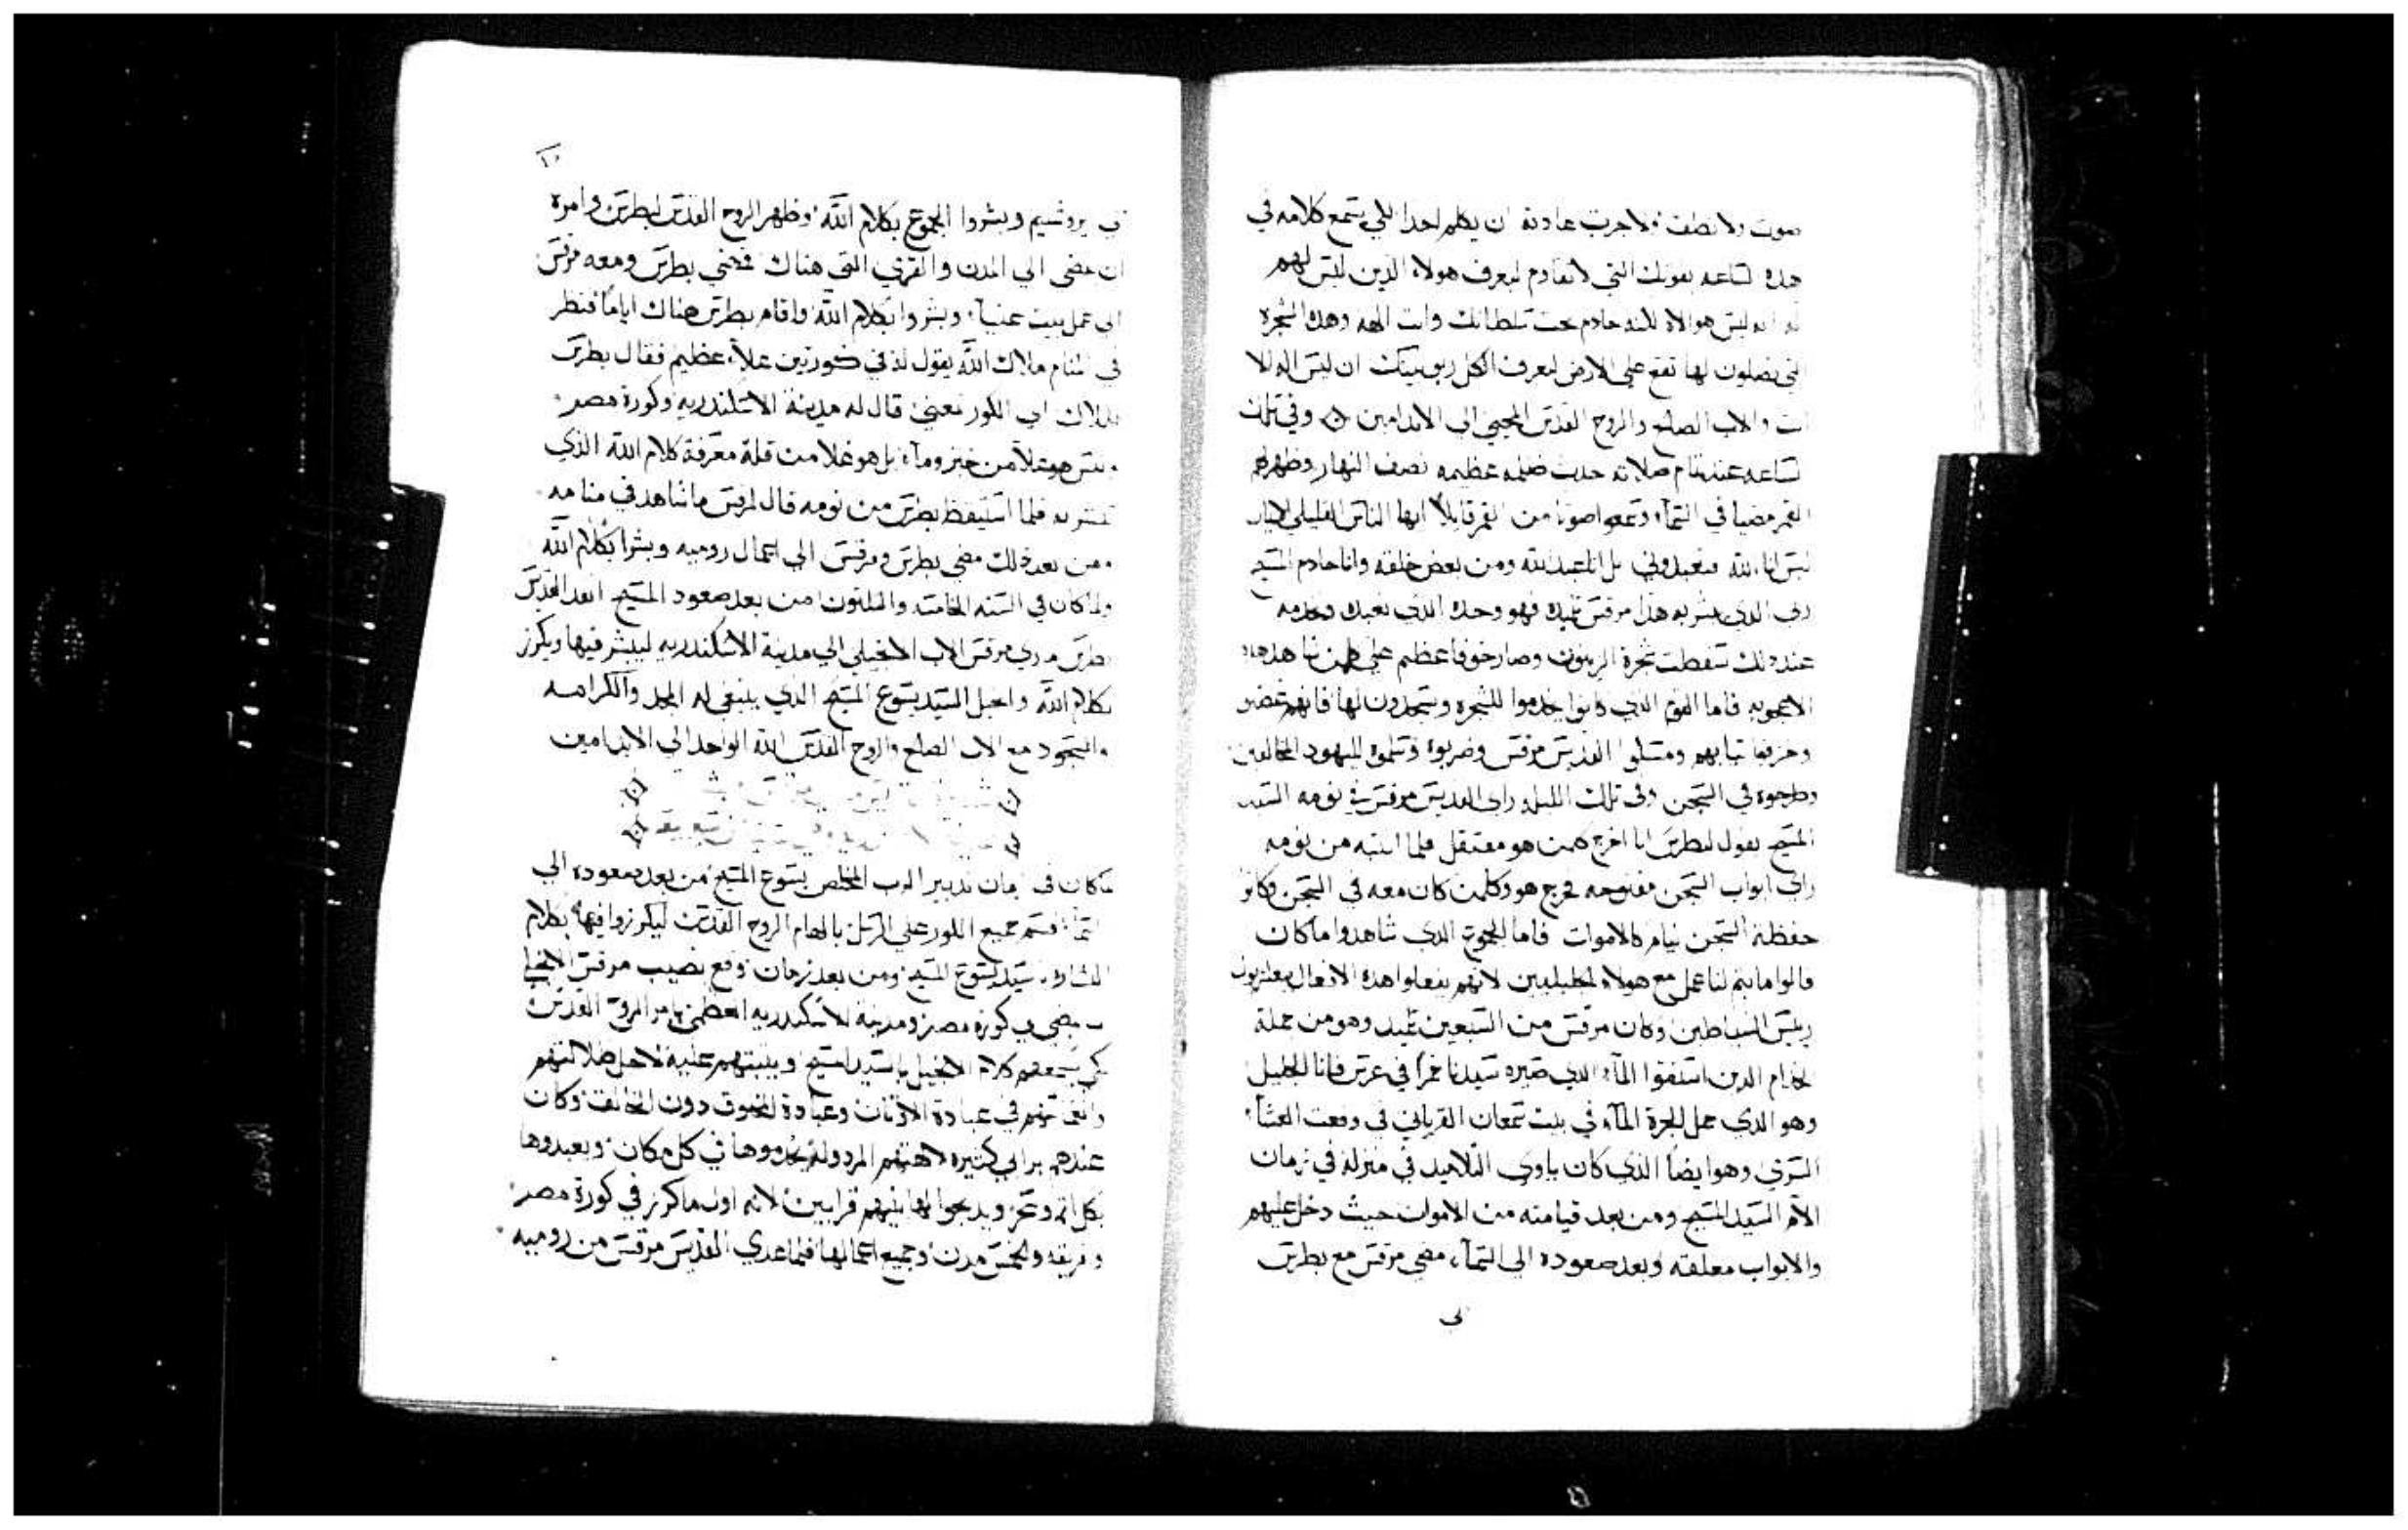 صوت ولا نطق ولا جرت عادته ان يكلم احدا لكي يستمع كلامه في
هده الساعه بقوتك التي لا تقاوم ليعرف هولاء الدين ليس لهم
اله انه ليس هو الاه لكنه خادم تحت سلطانك وانت الهه وهده الشجره
التي يصلون لها تقع علي الارض ليعرف الكل ربوبيتك ان ليس اله الا
انت والاب الصالح والروح القدس المحيي الي الابد امين وفي تلك
الساعه عند تمام صلاته حدث ظلمه عظيمه نصف النهار وظهر لهم
القمر مضيا في السمآء وسمعوا صوتا من القمر قايلاً ايها الناس القليلي
ليس انا الله فتعبدوني بل انا عبد لله ومن بعض خلقه وانا خادم المسيح
ربي الدي يبشر به هدا مرقس تلميده فهو وحده الدي نعبده ونخدمه
عند دلك سقطت شجرة الزيتون وصار خوفا عظيم علي كلمن شاهد هده
الاعجوبه فاما القوم الدي كانوا يخدموا للشجره ويسجدون لها فانهم غضبو
وخرقوا تيابهم ومسكوا القديس مرقس وضربوه وسلموه لليهود المخالفين
وطرحوه في السجن وفي تلك الليله راي القديس مرقس في نومه السيد
المسيح يقول لبطرس انا اخرج كلمن هو معتقل فلما انتبه من نومه
راي ابواب السجن مفتوحه فخرج هو وكلمن كان معه في السجن وكانو
حفظة السجن نيام كالاموات فاما الجموع الدي شاهدوا ما كان
قالوا ما يتم لنا عمل مع هولاء الجليليين لانهم يفعلوا هده الافعال بعلزبول
رييس الشياطين وكان مرقس من السبعين تلميد وهو من جملة
الخدام الدين استقوا المآء الدي صيره سيدنا خمراً في عرس قانا الجليل
وهو الدي حمل الجرة المآء في بيت سمعان القرياني في وقت العشآء
السري وهو ايضاً الذي كان ياوي التلاميد في منزله في زمان
الآم السيد المسيح ومن بعد قيامته من الاموات حيث دخل عليهم
والابواب مغلقه وبعد صعوده الي السمآء مضي مرقس مع بطرس
الي
١٠
الي يروشليم وبشروا الجموع بكلام الله وظهر الروح القدس لبطرس وامره
ان يمضي الي المدن والقري التي هناك فمضي بطرس ومعه مرقس
الي عمل بيت عنيآ وبشروا بكلام الله واقام بطرس هناك اياماً فنظر
في المنام ملاك الله يقول له في كورتين غلآء عظيم فقال بطرس
للملاك اي الكور تعني قال له مدينة الاسكندريه وكورة مصر
وليس هو غلآ من خبز ومآء بل هو غلا من قلة معرفة كلام الله الذي
تبشر به فلما استيقظ بطرس من نومه قال لمرقس ما شاهد في منامه
ومن بعد ذلك مضي بطرس ومرقس الي اعمال روميه وبشرا بكلام الله
ولما كان في السنه الخامسه والتلتون من بعد صعود المسيح انفد القديس
بطرس ماري مرقس الاب الانجيلي الي مدينة الاسكندريه ليبشر فيها ويكرز
بكلام الله وانجيل السيد يسوع المسيح الذي ينبغي له المجد والكرامه
والسجود مع الاب الصالح والروح القدس الله الواحد الي الابد امين
لما كان في زمان تدبير الرب المخلص يسوع المسيح من بعد صعوده الي
السمآ قسم جميع الكور علي الرسل بالهام الروح القدس ليكرزوا فيها بكلام
البشاره بسيدنا يسوع المسيح ومن بعد زمان وقع نصيب مرقس الانجيلي
ان يمضي الي كورة مصر ومدينة الاسكندريه العظمي بامر الروح القدس
لكي يسمعهم كلام الانجيل بالسيد المسيح ويثبتهم عليه لاجل ضلالتهم
وانغماسهم في عبادة الاوتان وعبادة المخلوق دون الخالق وكان
عندهم برابي كتيره لالهتهم المردوله يخدموها في كل مكان ويعبدوها
بكل اتم وسحر ويدبحوا لها بنيهم قرابين لانه اول ما كرز في كورة مصر
وفريقيه والخمس مدن وجميع اعمالها فلما عدي القديس مرقس من روميه